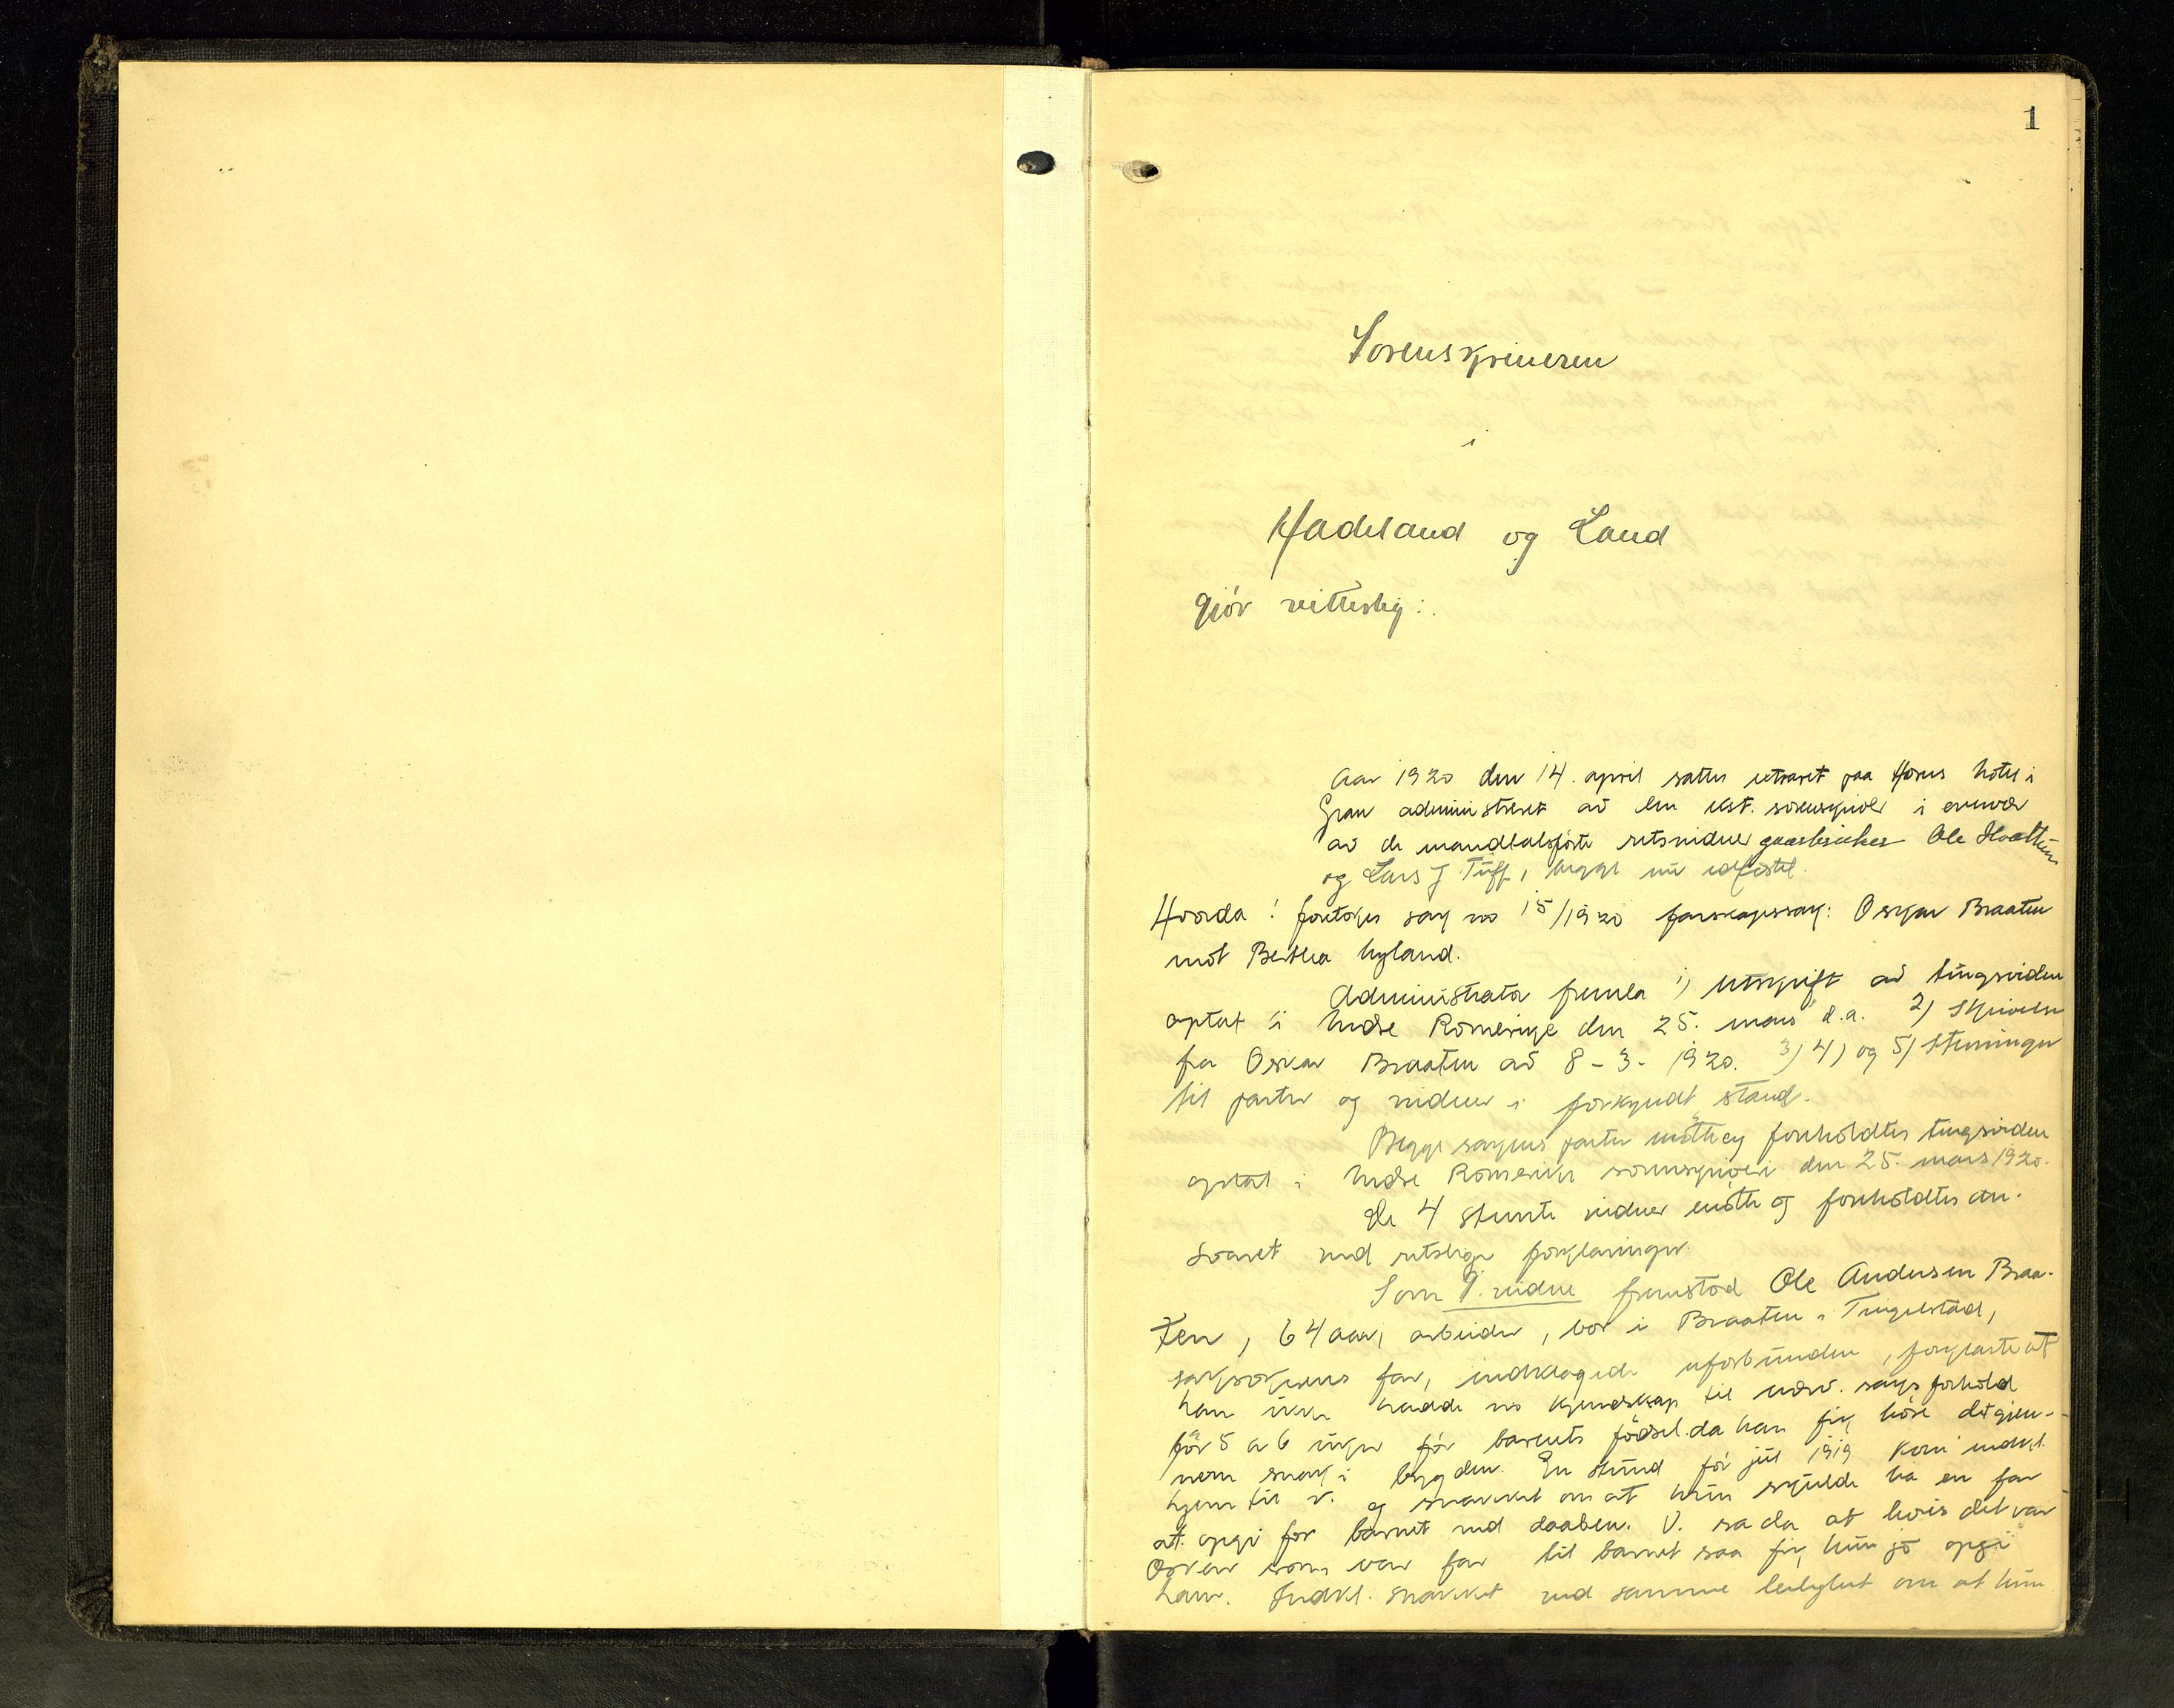 1
Sorenskriveren
i
Hadeland og Land
gjør vitterlig:
Aar 1920 den 14. april sattes extraret paa Hovs hotel i
Gran administreret av den kst. sorenskriver i overvær
av de mandtalsførte retsvidner gaardbruker Ole Hvattum
og Lars J Tuff, begge nu edfæstet.
Hvorda: foretoges sag no 15/1920 farskapssag: Oskar Braaten
mot Bertha Nyland.
Administrator fremla 1) utskrift av tingsvidne
optat i Nedre Romerike den 25. mars d.a. 2) Skrivelse
fra Oskar Braaten av 8-3-1920. 3) 4) og 5) stevninger
til parter og vidner i forkyndt stand.
Begge sakens parter møtte og foreholdtes tingsvidne
optat i Nedre Romerike sorenskriveri den 25. mars 1920.
De 4 stevnte vidner møtte og foreholdtes an-
svaret ved retslige forklaringer.
Som 1. vidne fremstod Ole Andersen Braa-
ten, 64 aar, arbeider, bor i Braaten i Tingelstad,
saksøkerens far, indklagede uforbunden, forklarte at
han ikke hadde no kjendskap til nærv. saks forhold
før 5 a 6 uker før barnets fødsel. da han fik høre det gjen-
nem snak i bygden. En stund før jul 1919 kom indkl.
hjem til v. og snakket om at hun skulde ha en far
at opgi for barnet ved daaben. V. sa da at hvis det var
Oskar som var far til barnet saa fik hun jo opgi
ham. Indkl. snakket ved samme leilighet om at hun